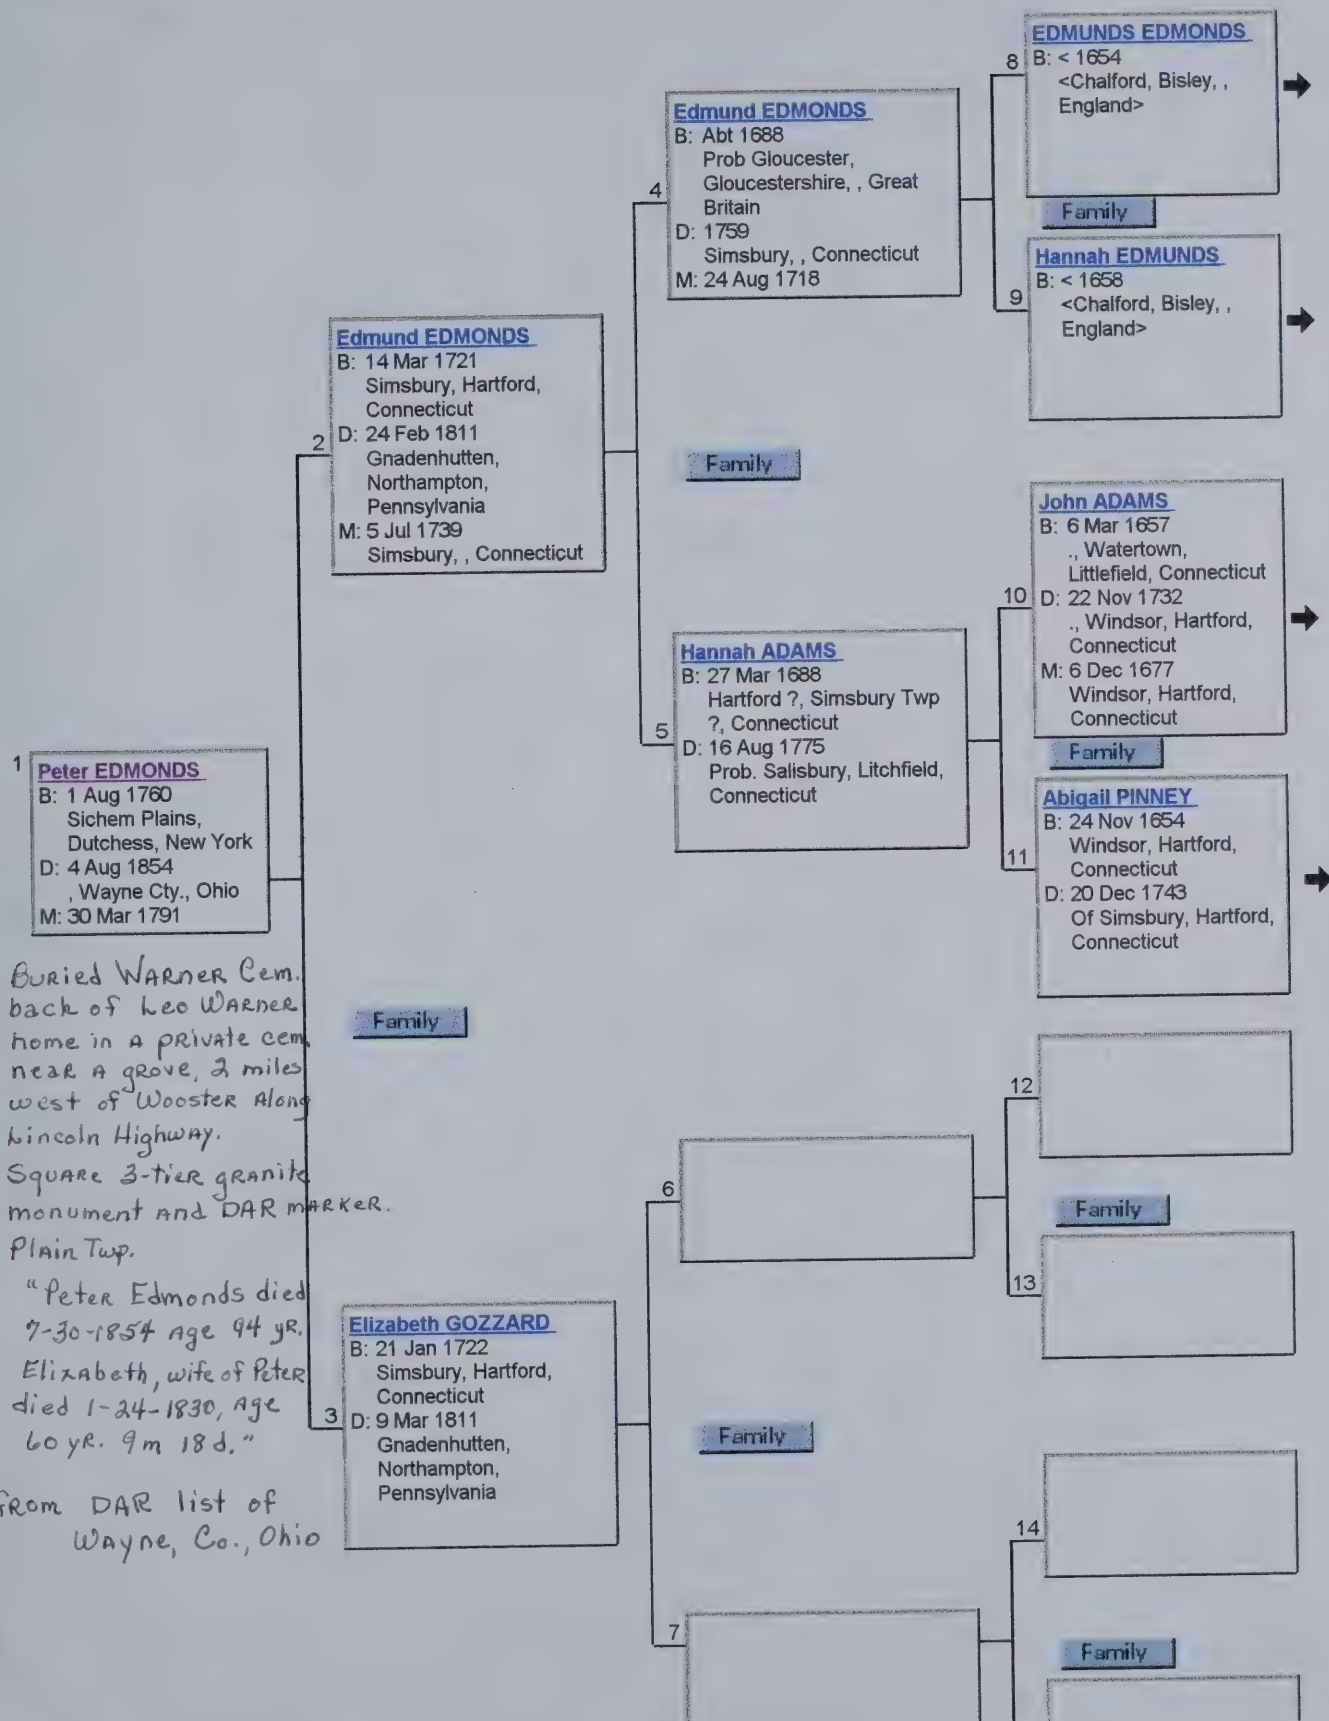 1
Peter EDMONDS
B: 1 Aug 1760
Sichem Plains,
Dutchess, New York
D: 4 Aug 1854
, Wayne Cty., Ohio
M: 30 Mar 1791
Buried Warner Cem.
back of Leo Warner
home in a private cem.
near a grove, 2 miles
west of Wooster along
Lincoln Highway.
Square 3-tier granite
monument and DAR marker.
Plain Twp.
"Peter Edmonds died
7-30-1854 age 94 yr.
Elizabeth, wife of Peter
died 1-24-1830, age
60 yr. 9m 18d."
from DAR list of
Wayne, Co., Ohio
2
Edmund EDMONDS
B: 14 Mar 1721
Simsbury, Hartford,
Connecticut
D: 24 Feb 1811
Gnadenhutten,
Northampton,
Pennsylvania
M: 5 Jul 1739
Simsbury, , Connecticut
Family
3
Elizabeth GOZZARD
B: 21 Jan 1722
Simsbury, Hartford,
Connecticut
D: 9 Mar 1811
Gnadenhutten,
Northampton,
Pennsylvania
4
Edmund EDMONDS
B: Abt 1688
Prob Gloucester,
Gloucestershire, , Great
Britain
D: 1759
Simsbury, , Connecticut
M: 24 Aug 1718
Family
5
Hannah ADAMS
B: 27 Mar 1688
Hartford ?, Simsbury Twp
?, Connecticut
D: 16 Aug 1775
Prob. Salisbury, Litchfield,
Connecticut
6
Family
7
8
EDMUNDS EDMONDS
B: < 1654
<Chalford, Bisley, ,
England>
Family
9
Hannah EDMUNDS
B: < 1658
<Chalford, Bisley, ,
England>
10
John ADAMS
B: 6 Mar 1657
., Watertown,
Littlefield, Connecticut
D: 22 Nov 1732
., Windsor, Hartford,
Connecticut
M: 6 Dec 1677
Windsor, Hartford,
Connecticut
Family
11
Abigail PINNEY
B: 24 Nov 1654
Windsor, Hartford,
Connecticut
D: 20 Dec 1743
Of Simsbury, Hartford,
Connecticut
12
Family
13
14
Family